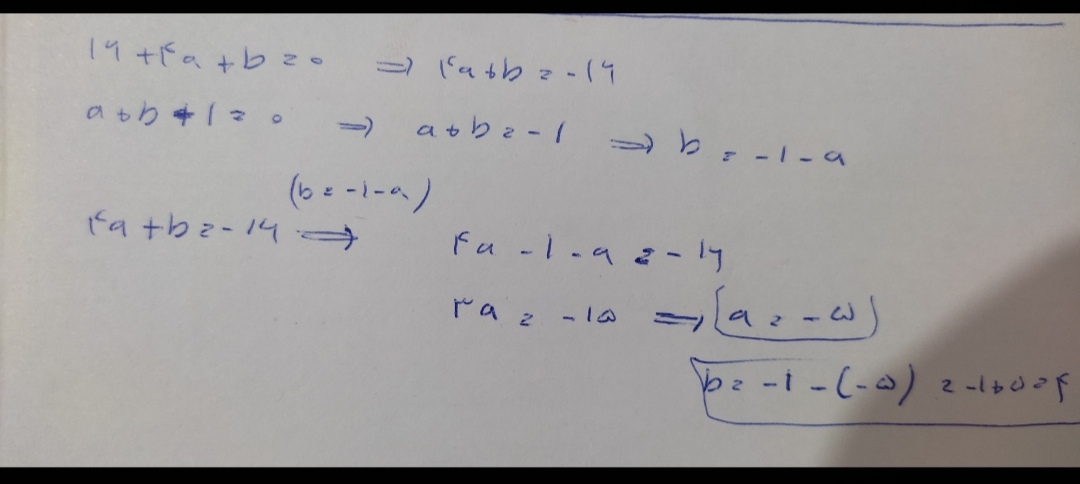 ۱۶ + ۴a + b = ۰ ⇒ ۴a + b = -۱۶
a + b + ۱ = ۰ ⇒ a + b = -۱ ⇒ b = -۱ - a
(b = -۱ - a)
۴a + b = -۱۶ ⇒ ۴a - ۱ - a = -۱۶
۳a = -۱۵ ⇒ a = -۵
b = -۱ - (-۵) = -۱ + ۵ = ۴